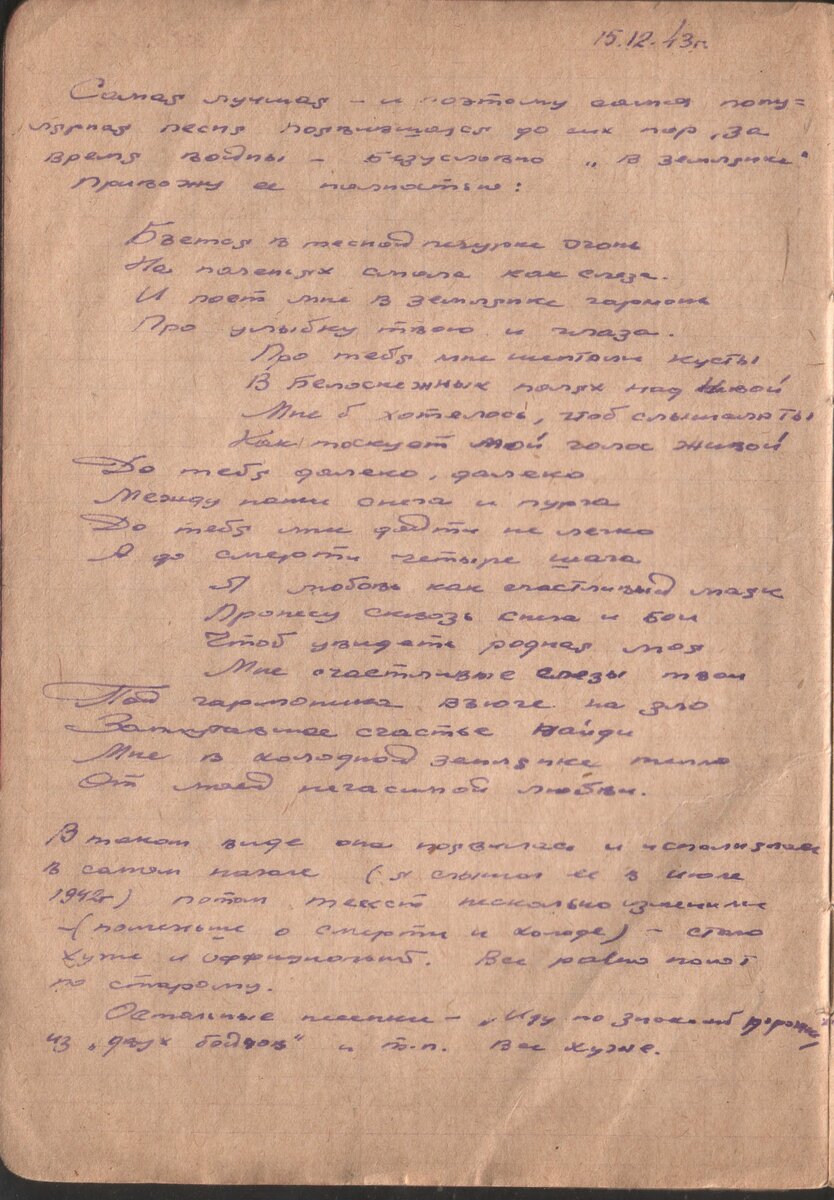 15.12.43г.
Самая лучшая – и поэтому самая попу=
лярная песня появившаяся до сих пор, за
время войны – безусловно „В землянке"
Привожу ее полностью:
Бьется в тесной печурке огонь
На поленьях смола как слеза.
И поет мне в землянке гармонь
Про улыбку твою и глаза.
Про тебя мне шептали кусты
В белоснежных полях над Невой
Мне б хотелось, чтоб слышала ты
Как тоскует мой голос живой
До тебя далеко, далеко
Между нами снега и пурга
До тебя мне дойти не легко
А до смерти четыре шага
Я любовь как счастливый маяк
Пронесу сквозь снега и бои
Чтоб увидеть родная моя
Мне счастливые слезы твои
Пой гармоника вьюге на зло
Заплутавшее счастье найди
Мне в холодной землянке тепло
От моей негасимой любви.
В таком виде она появилась и исполнялась
в самом начале (я слышал ее в июле
1942г) потом текст несколько изменили
– (поменьше о смерти и холоде) – стало
хуже и оффициальней. Все равно поют
по старому.
Остальные песенки – „Иду по знакомой дорожке,
из „двух бойцов" и т.п. Все хуже.